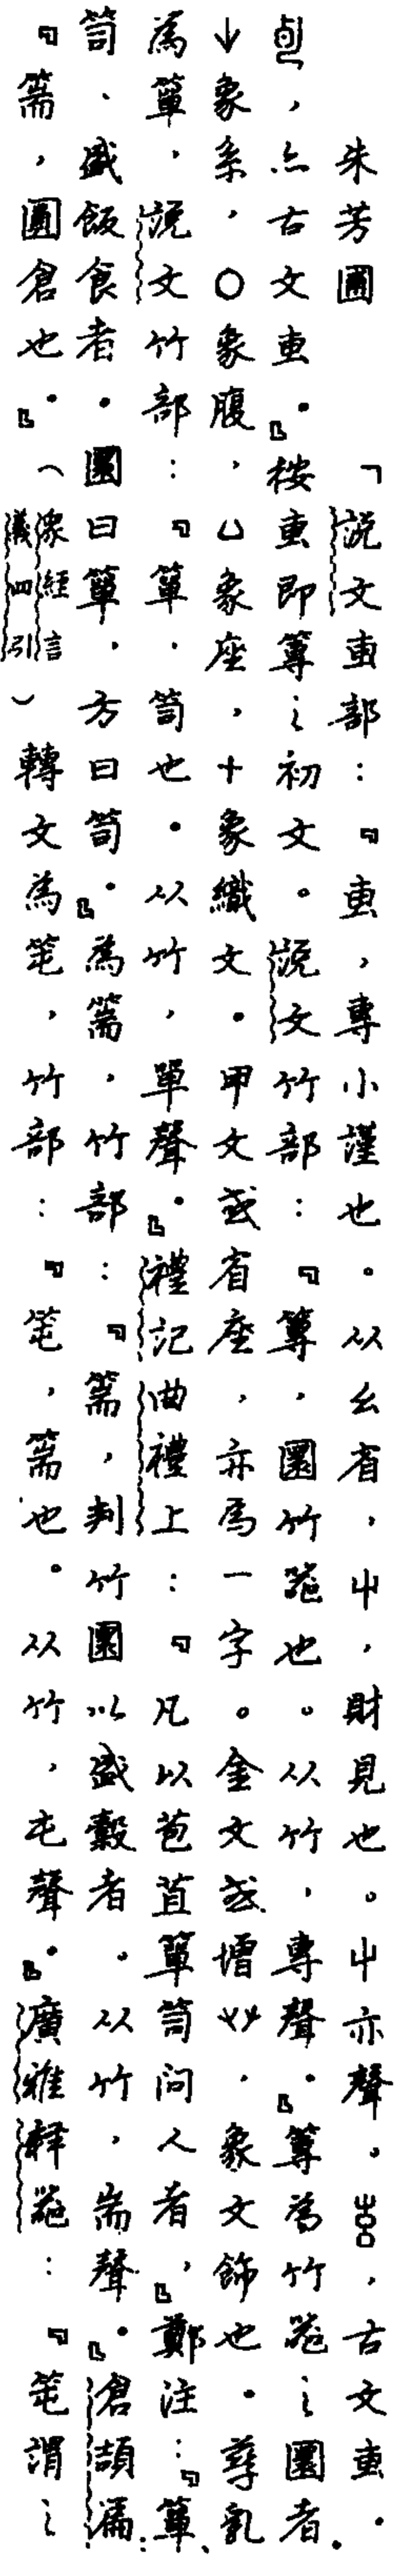 朱芳圃　「說文叀部：『叀，專小謹也。从幺省，屮，財見也。屮亦聲。𠧪，古文叀。
，亦古文叀。』桉叀即篿之初文。說文竹部：『篿，圜竹器也。从竹，專聲。』篿為竹器之圜者。
↓象系，○象腹，凵象座，十象織文。甲文或省座，亦為一字。金文或增艸，象文飾也。孳乳
為簞，說文竹部：『簞，笥也。从竹，單聲。』禮記曲禮上：『凡以苞苴簞笥問人者，』鄭注：『簞、
笥，盛飯食者。圜曰簞，方曰笥。』為篅，竹部：『篅，判竹圜以盛穀者。从竹，耑聲。』倉頡篇：
『篅，圓倉也。』（眾經音義四引）轉文為笹，竹部：『笹，篅也。从竹，屯聲。』廣雅釋器：『笹謂之